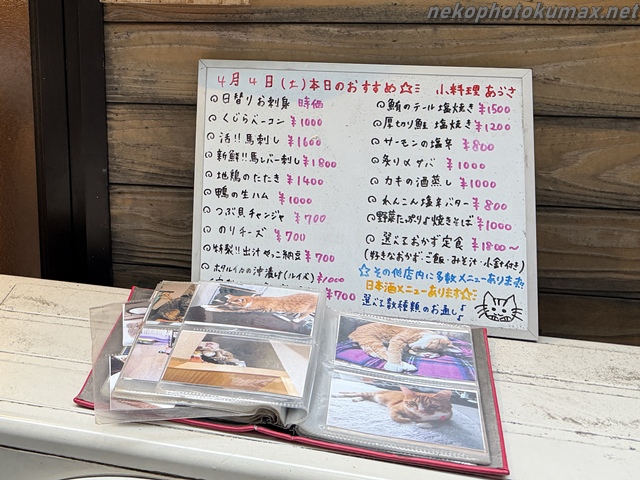 nekophotokumax.net
4月4日(土)本日のおすすめ☆ミ 小料理 あうさ
日替りお刺身 時価
くじらベーコン ¥1000
活!!馬刺し ¥1600
新鮮!!馬レバー刺し ¥1800
地鶏のたたき ¥1400
鴨の生ハム ¥1000
つぶ貝チャンジャ ¥700
のりチーズ ¥700
特製!!出汁やっこ納豆 ¥700
ホタルイカの沖漬け(ルイベ) ¥1000
¥700
鮪のテール塩焼き ¥1500
厚切り鮭 塩焼き ¥1200
サーモンの塩辛 ¥800
炙り〆サバ ¥1000
カキの酒蒸し ¥1000
れんこん塩辛バター ¥800
野菜たっぷり♪焼きそば ¥1000
選べるおかず定食 ¥1800〜
(好きなおかず・ご飯・みそ汁・小鉢付き)
☆その他店内に多数メニューあります☆
日本酒メニューあります☆ミ
選べる数種類のお通し♪